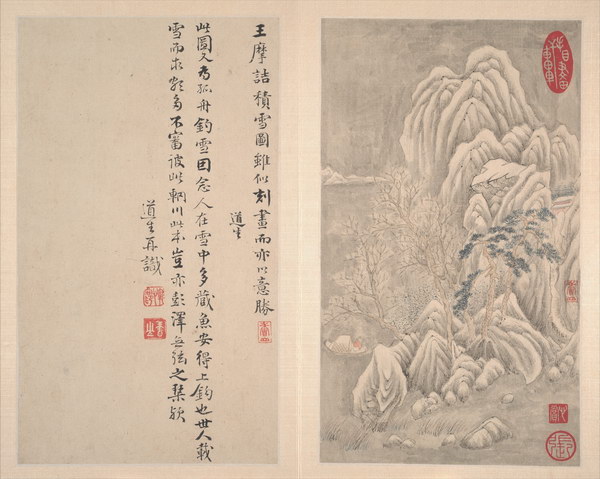 王摩詰積雪圖雖似刻畫而亦以意勝
道生
此圖又為孤舟釣雪因念人在雪中多藏魚安得上釣也世人載
雪而求多不審彼此輞川此本豈亦彭澤無弦之琴歟
道生再識